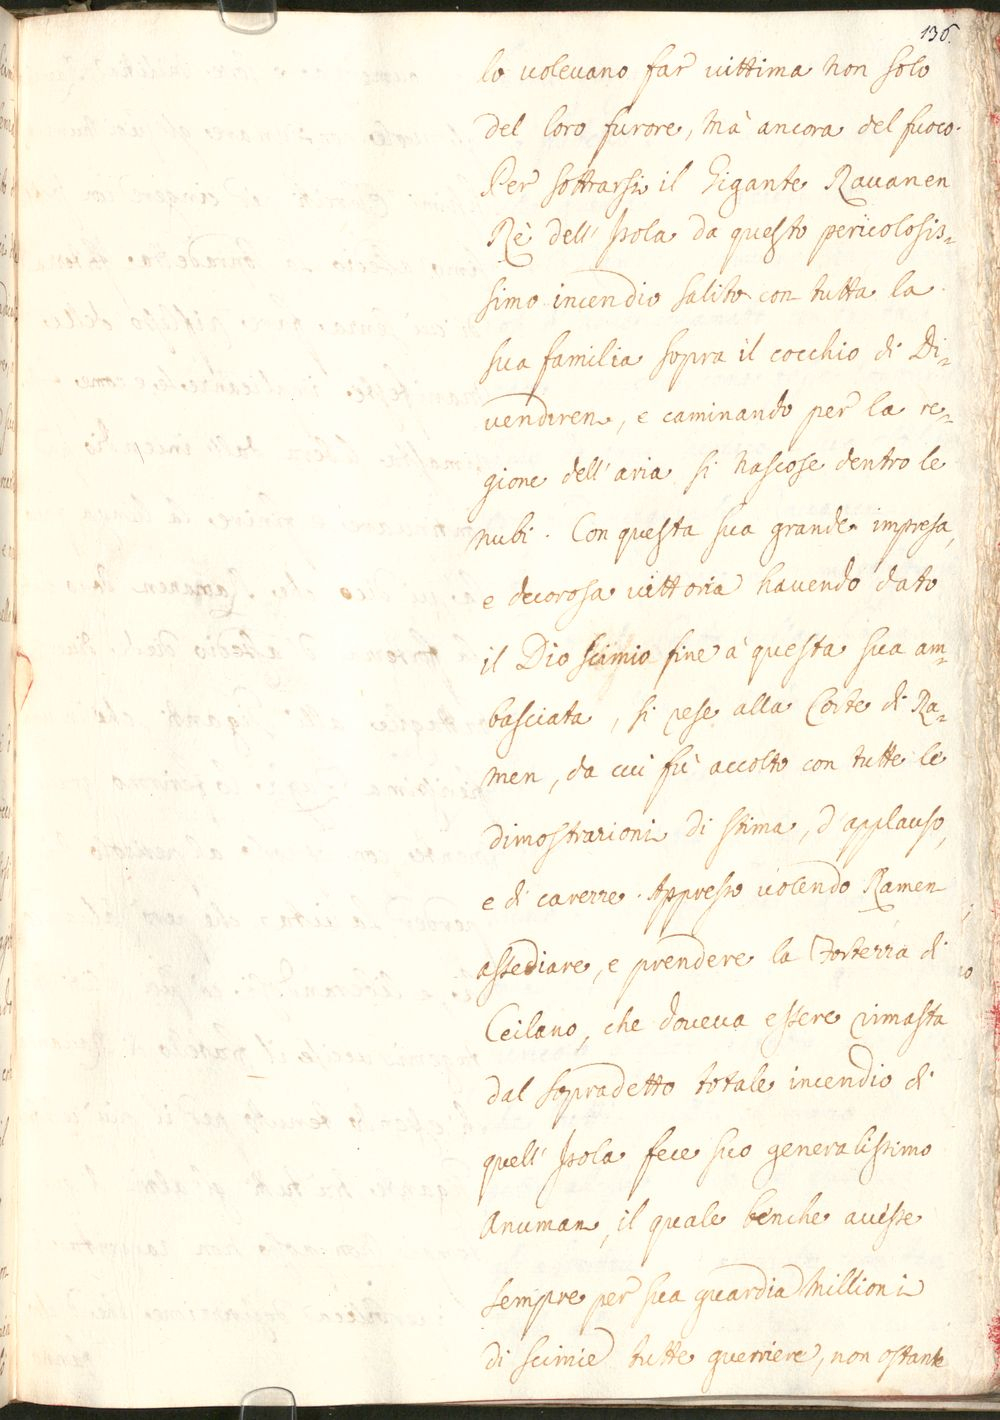 136.
lo volevano far vittima non solo
del loro furore, mà ancora del fuoco.
Per sottrarsi il Gigante Ravanen
Rè dell' Isola da questo pericolosis-
simo incendio salito con tutta la
sua familia sopra il cocchio di Di-
vendiren, e caminando per la re-
gione dell' aria si nascose dentro le
nubi. Con questa sua grande impresa,
e decorosa vittoria havendo dato
il Dio scimio fine à questa sua am-
basciata, si rese alla Corte di Ra-
men, da cui fù accolto con tutte le
dimostrazioni di stima, d'applauso,
e di carezze. Appresso volendo Ramen
assediare, e prendere la Fortezza di
Ceilano, che doveva essere rimasta
dal sopradetto totale incendio di
quell' Isola fece suo generalissimo
Anuman, il quale benche avesse
sempre per sua guardia millioni
di scimie tutte guerriere, non ostante